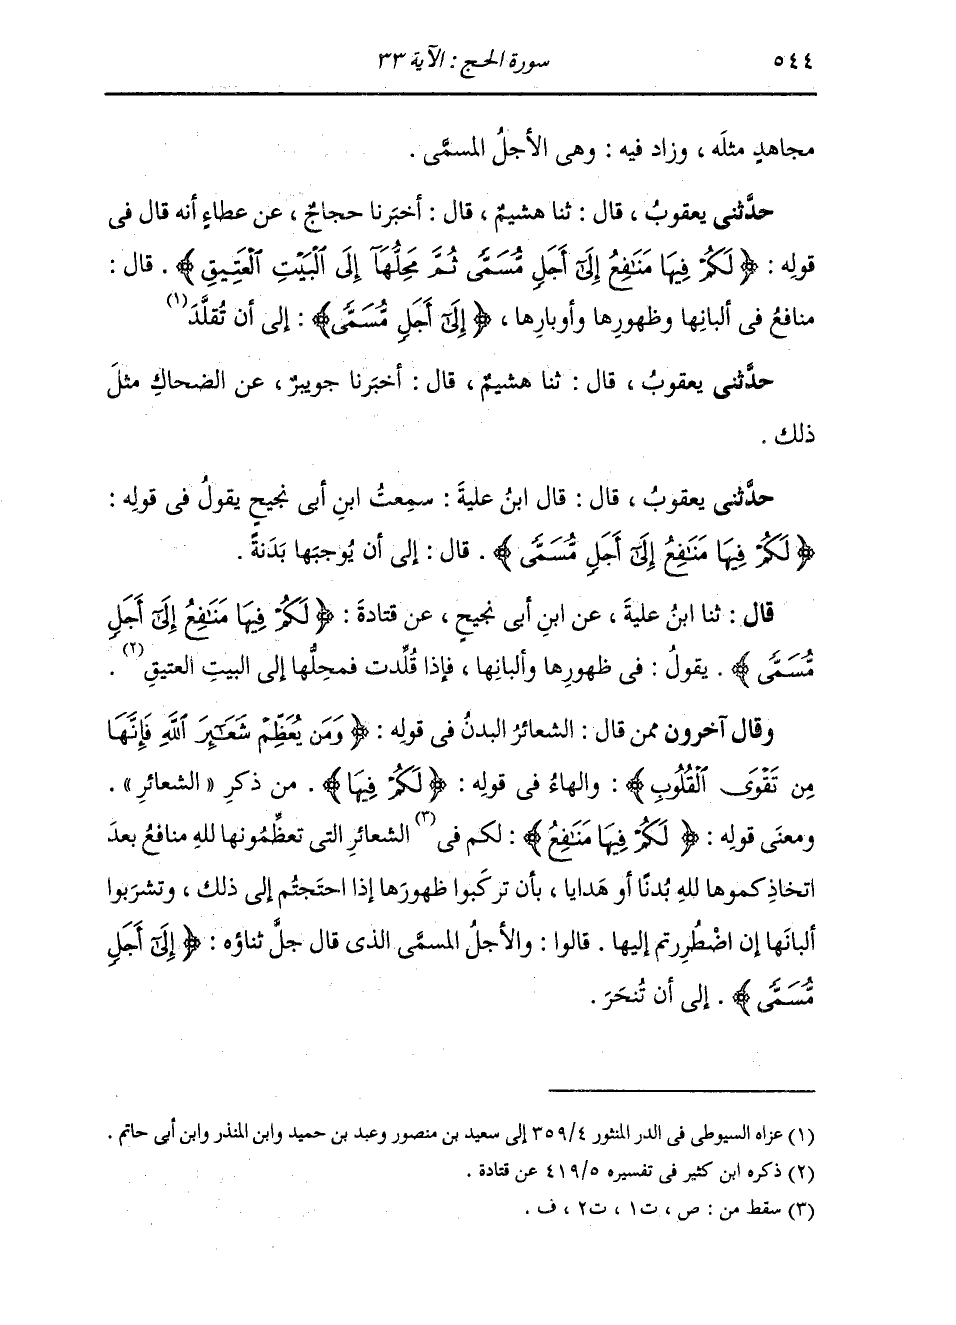 ٥٤٤ سورة الحج : الآية ٣٣
مجاهدٍ مثلَه ، وزاد فيه : وهى الأجلُ المسمَّى .
حدَّثنى يعقوبُ ، قال : ثنا هشيمٌ ، قال : أخبَرنا حجاجٌ ، عن عطاءٍ أنه قال فى
قولِه : ﴿ لَكُمْ فِيهَا مَنَٰفِعُ إِلَىٰٓ أَجَلٍ مُّسَمًّى ثُمَّ مَحِلُّهَآ إِلَى ٱلْبَيْتِ ٱلْعَتِيقِ ﴾ . قال :
منافعُ فى ألبانِها وظهورِها وأوبارِها ، ﴿ إِلَىٰٓ أَجَلٍ مُّسَمًّى ﴾ : إلى أن تُقلَّدَ(١)
حدَّثنى يعقوبُ ، قال : ثنا هشيمٌ ، قال : أخبَرنا جويبرٌ ، عن الضحاكِ مثلَ
ذلك .
حدَّثنى يعقوبُ ، قال : قال ابنُ عليةَ : سمِعتُ ابنِ أبى نجيحٍ يقولُ فى قولِه :
﴿ لَكُمْ فِيهَا مَنَٰفِعُ إِلَىٰٓ أَجَلٍ مُّسَمًّى ﴾ . قال : إلى أن يُوجبَها بَدَنةً .
قال : ثنا ابنُ عليةَ ، عن ابنِ أبى نجيحٍ ، عن قتادةَ : ﴿ لَكُمْ فِيهَا مَنَٰفِعُ إِلَىٰٓ أَجَلٍ
مُّسَمًّى ﴾ . يقولُ : فى ظهورِها وألبانِها ، فإذا قُلِّدت فمحِلُّها إلى البيتِ العتيقِ(٢) .
وقال آخرون ممن قال : الشعائرُ البدنُ فى قولِه : ﴿ وَمَن يُعَظِّمْ شَعَٰٓئِرَ ٱللَّهِ فَإِنَّهَا
مِن تَقْوَى ٱلْقُلُوبِ ﴾ : والهاءُ فى قولِه : ﴿ لَكُمْ فِيهَا ﴾ . من ذكرِ « الشعائرِ » .
ومعنَى قولِه : ﴿ لَكُمْ فِيهَا مَنَٰفِعُ ﴾ : لكم فى(٣) الشعائرِ التى تعظِّمُونها للهِ منافعُ بعدَ
اتخاذِكموها للهِ بُدنًا أو هَدايا ، بأن تركَبوا ظهورَها إذا احتَجتُم إلى ذلك ، وتشرَبوا
ألبانَها إن اضْطُررتم إليها . قالوا : والأجلُ المسمَّى الذى قال جلَّ ثناؤه : ﴿ إِلَىٰٓ أَجَلٍ
مُّسَمًّى ﴾ . إلى أن تُنحَرَ .
(١) عزاه السيوطى فى الدر المنثور ٣٥٩/٤ إلى سعيد بن منصور وعبد بن حميد وابن المنذر وابن أبى حاتم .
(٢) ذكره ابن كثير فى تفسيره ٤١٩/٥ عن قتادة .
(٣) سقط من : ص ، ت١ ، ت٢ ، ف .